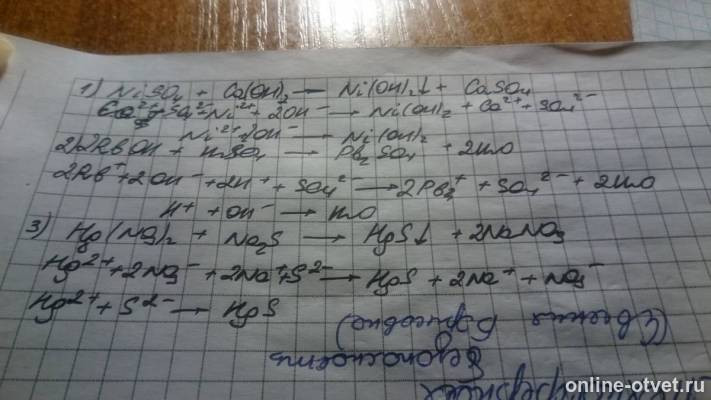 1) NiSO4 + Ca(OH)2 → Ni(OH)2↓ + CaSO4
Ca²⁺ + SO4²⁻ + Ni²⁺ + 2OH⁻ → Ni(OH)2 + Ca²⁺ + SO4²⁻
Ni²⁺ 2OH⁻ → Ni(OH)2
2) 2RbOH + H2SO4 → Rb2SO4 + 2H2O
2Rb⁺ + 2OH⁻ + 2H⁺ + SO4²⁻ → 2Rb⁺ + SO4²⁻ + 2H2O
H⁺ + OH⁻ → H2O
3) Hg(NO3)2 + Na2S → HgS↓ + 2NaNO3
Hg²⁺ + 2NO3⁻ + 2Na⁺ + S²⁻ → HgS + 2Na⁺ + NO3⁻
Hg²⁺ + S²⁻ → HgS
Безопасность
online-otvet.ru